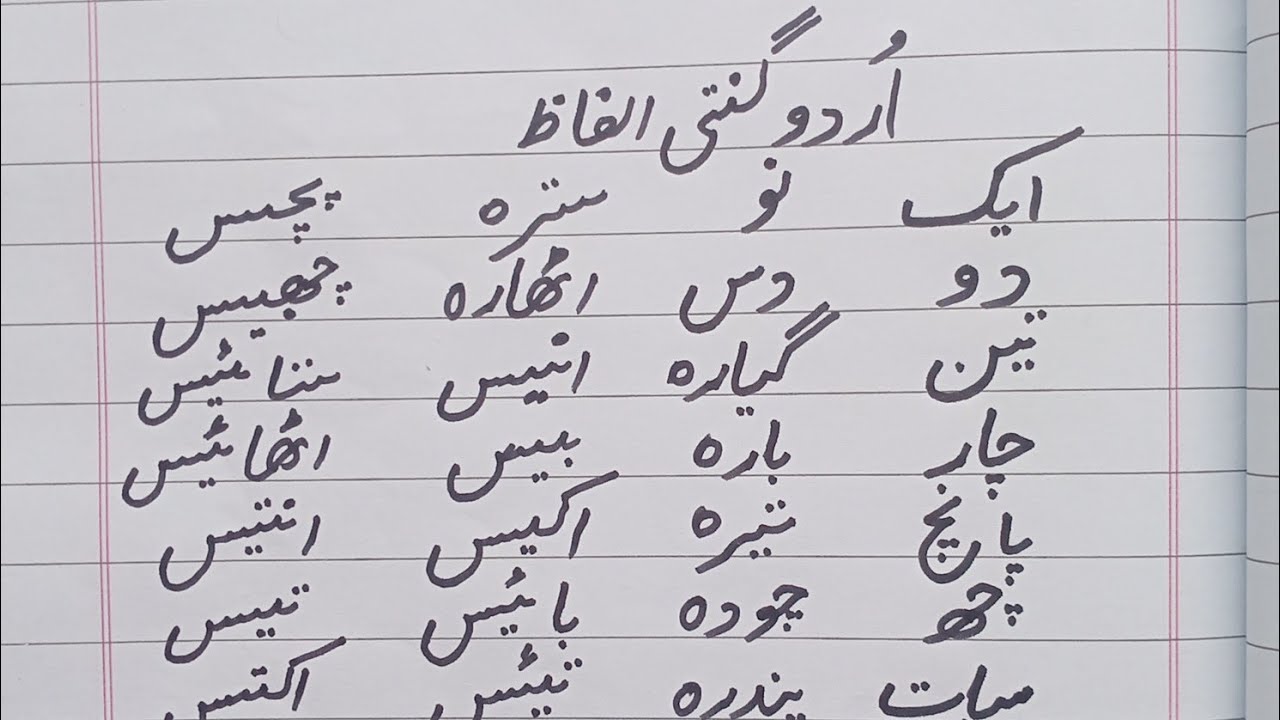 اُردو گنتی الفاظ
ایک نو سترہ پچیس
دو دس اٹھارہ چھبیس
تین گیارہ انیس ستائیس
چار بارہ بیس اٹھائیس
پانچ تیرہ اکیس انتیس
چھ چودہ بائیس تیس
سات پندرہ تیئس اکتس